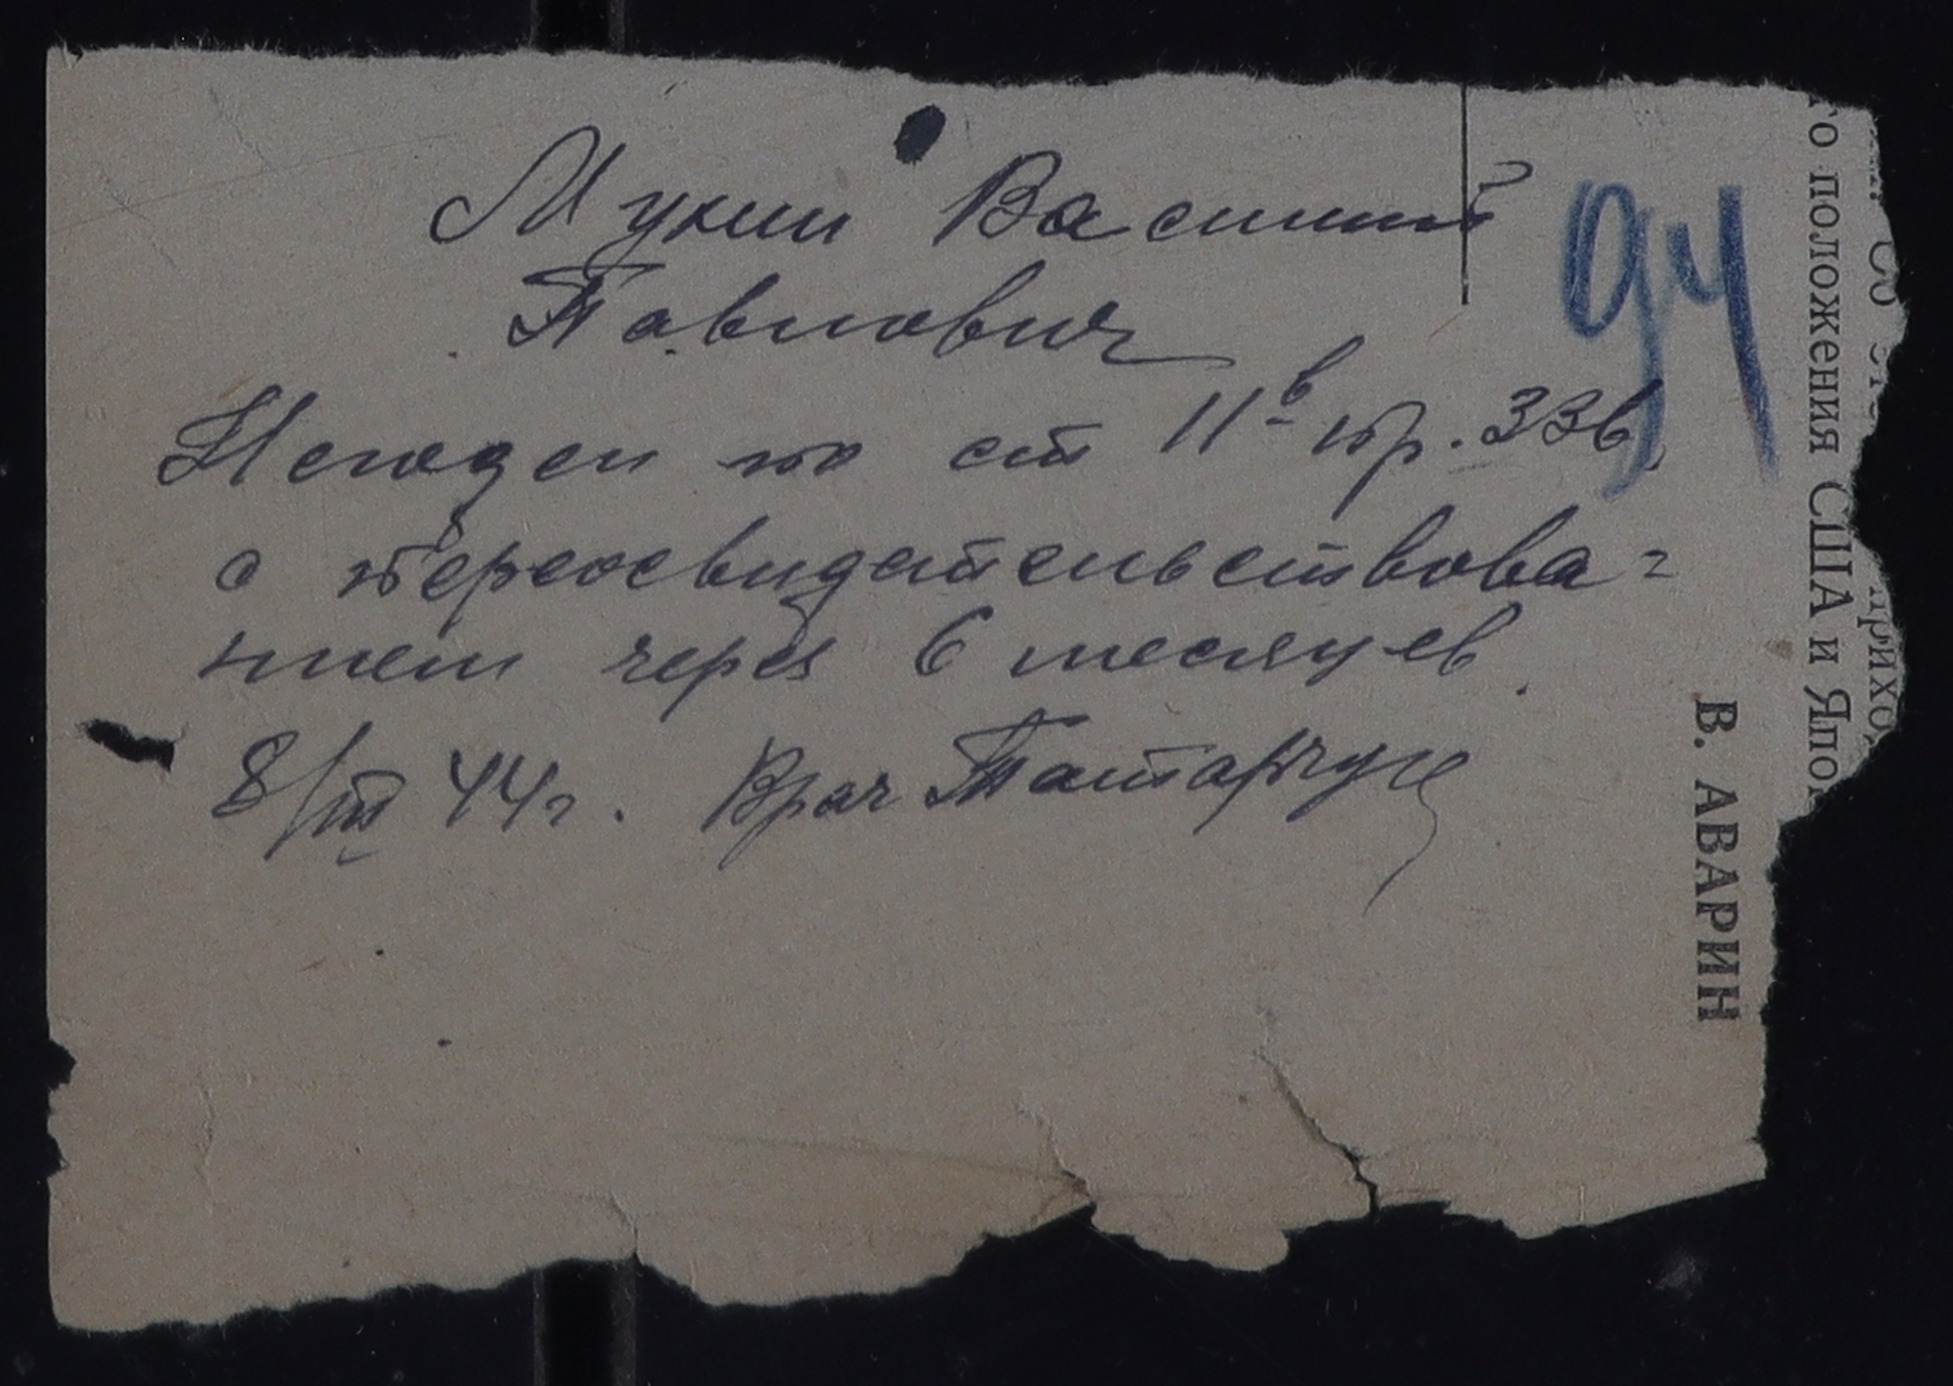 Мухин Василий
Павлович
94
Негоден по ст 11в пр. 336
с переосвидетельствова=
нием через 6 месяцев.
8/III 44г. Врач Татарчук
го положения США и Япо
В. АВАРИН